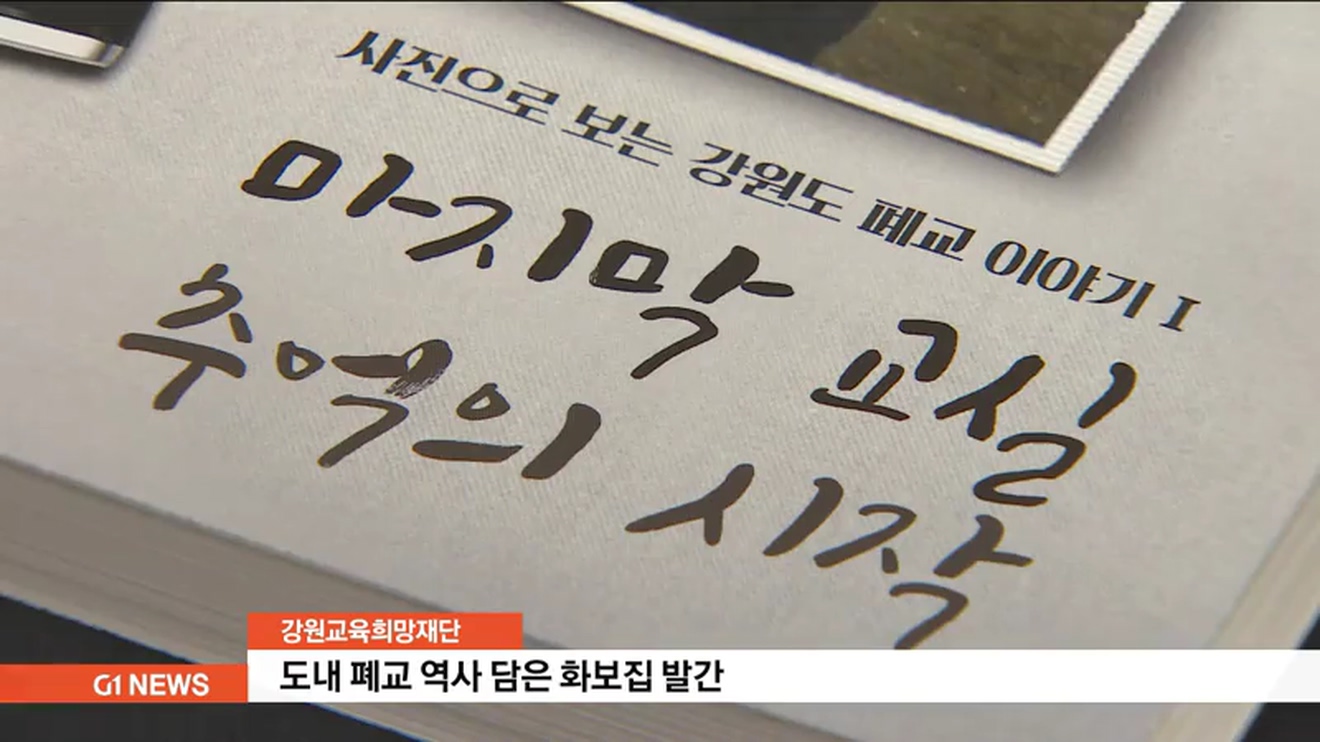 사진으로 보는 강원도 폐교 이야기 I
마지막 교실
추억의 시작
강원교육희망재단
G1 NEWS
도내 폐교 역사 담은 화보집 발간